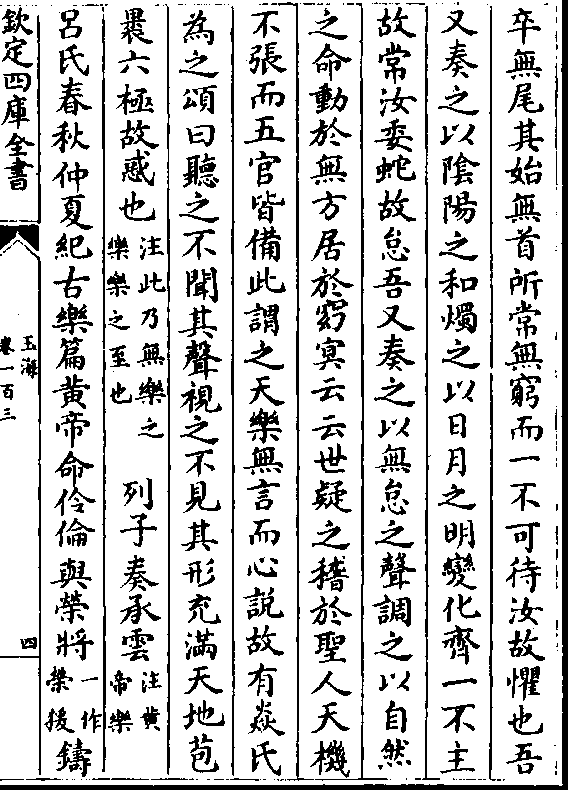 卒無尾其始無首所常無窮而一不可待汝故懼也吾
又奏之以陰陽之和燭之以日月之明變化齊一不主
故常汝委蛇故怠吾又奏之以無怠之聲調之以自然
之命動於無方居於窈冥云云世疑之稽於聖人天機
不張而五官皆備此謂之天樂無言而心說故有焱氏
為之頌曰聽之不聞其聲視之不見其形充滿天地苞
褁六極故惑也注此乃無樂之樂樂之至也 列子奏承雲注黄帝樂
呂氏春秋仲夏紀古樂篇黄帝命伶倫與榮將一作榮援鑄
欽定四庫全書
玉海
卷一百三
四